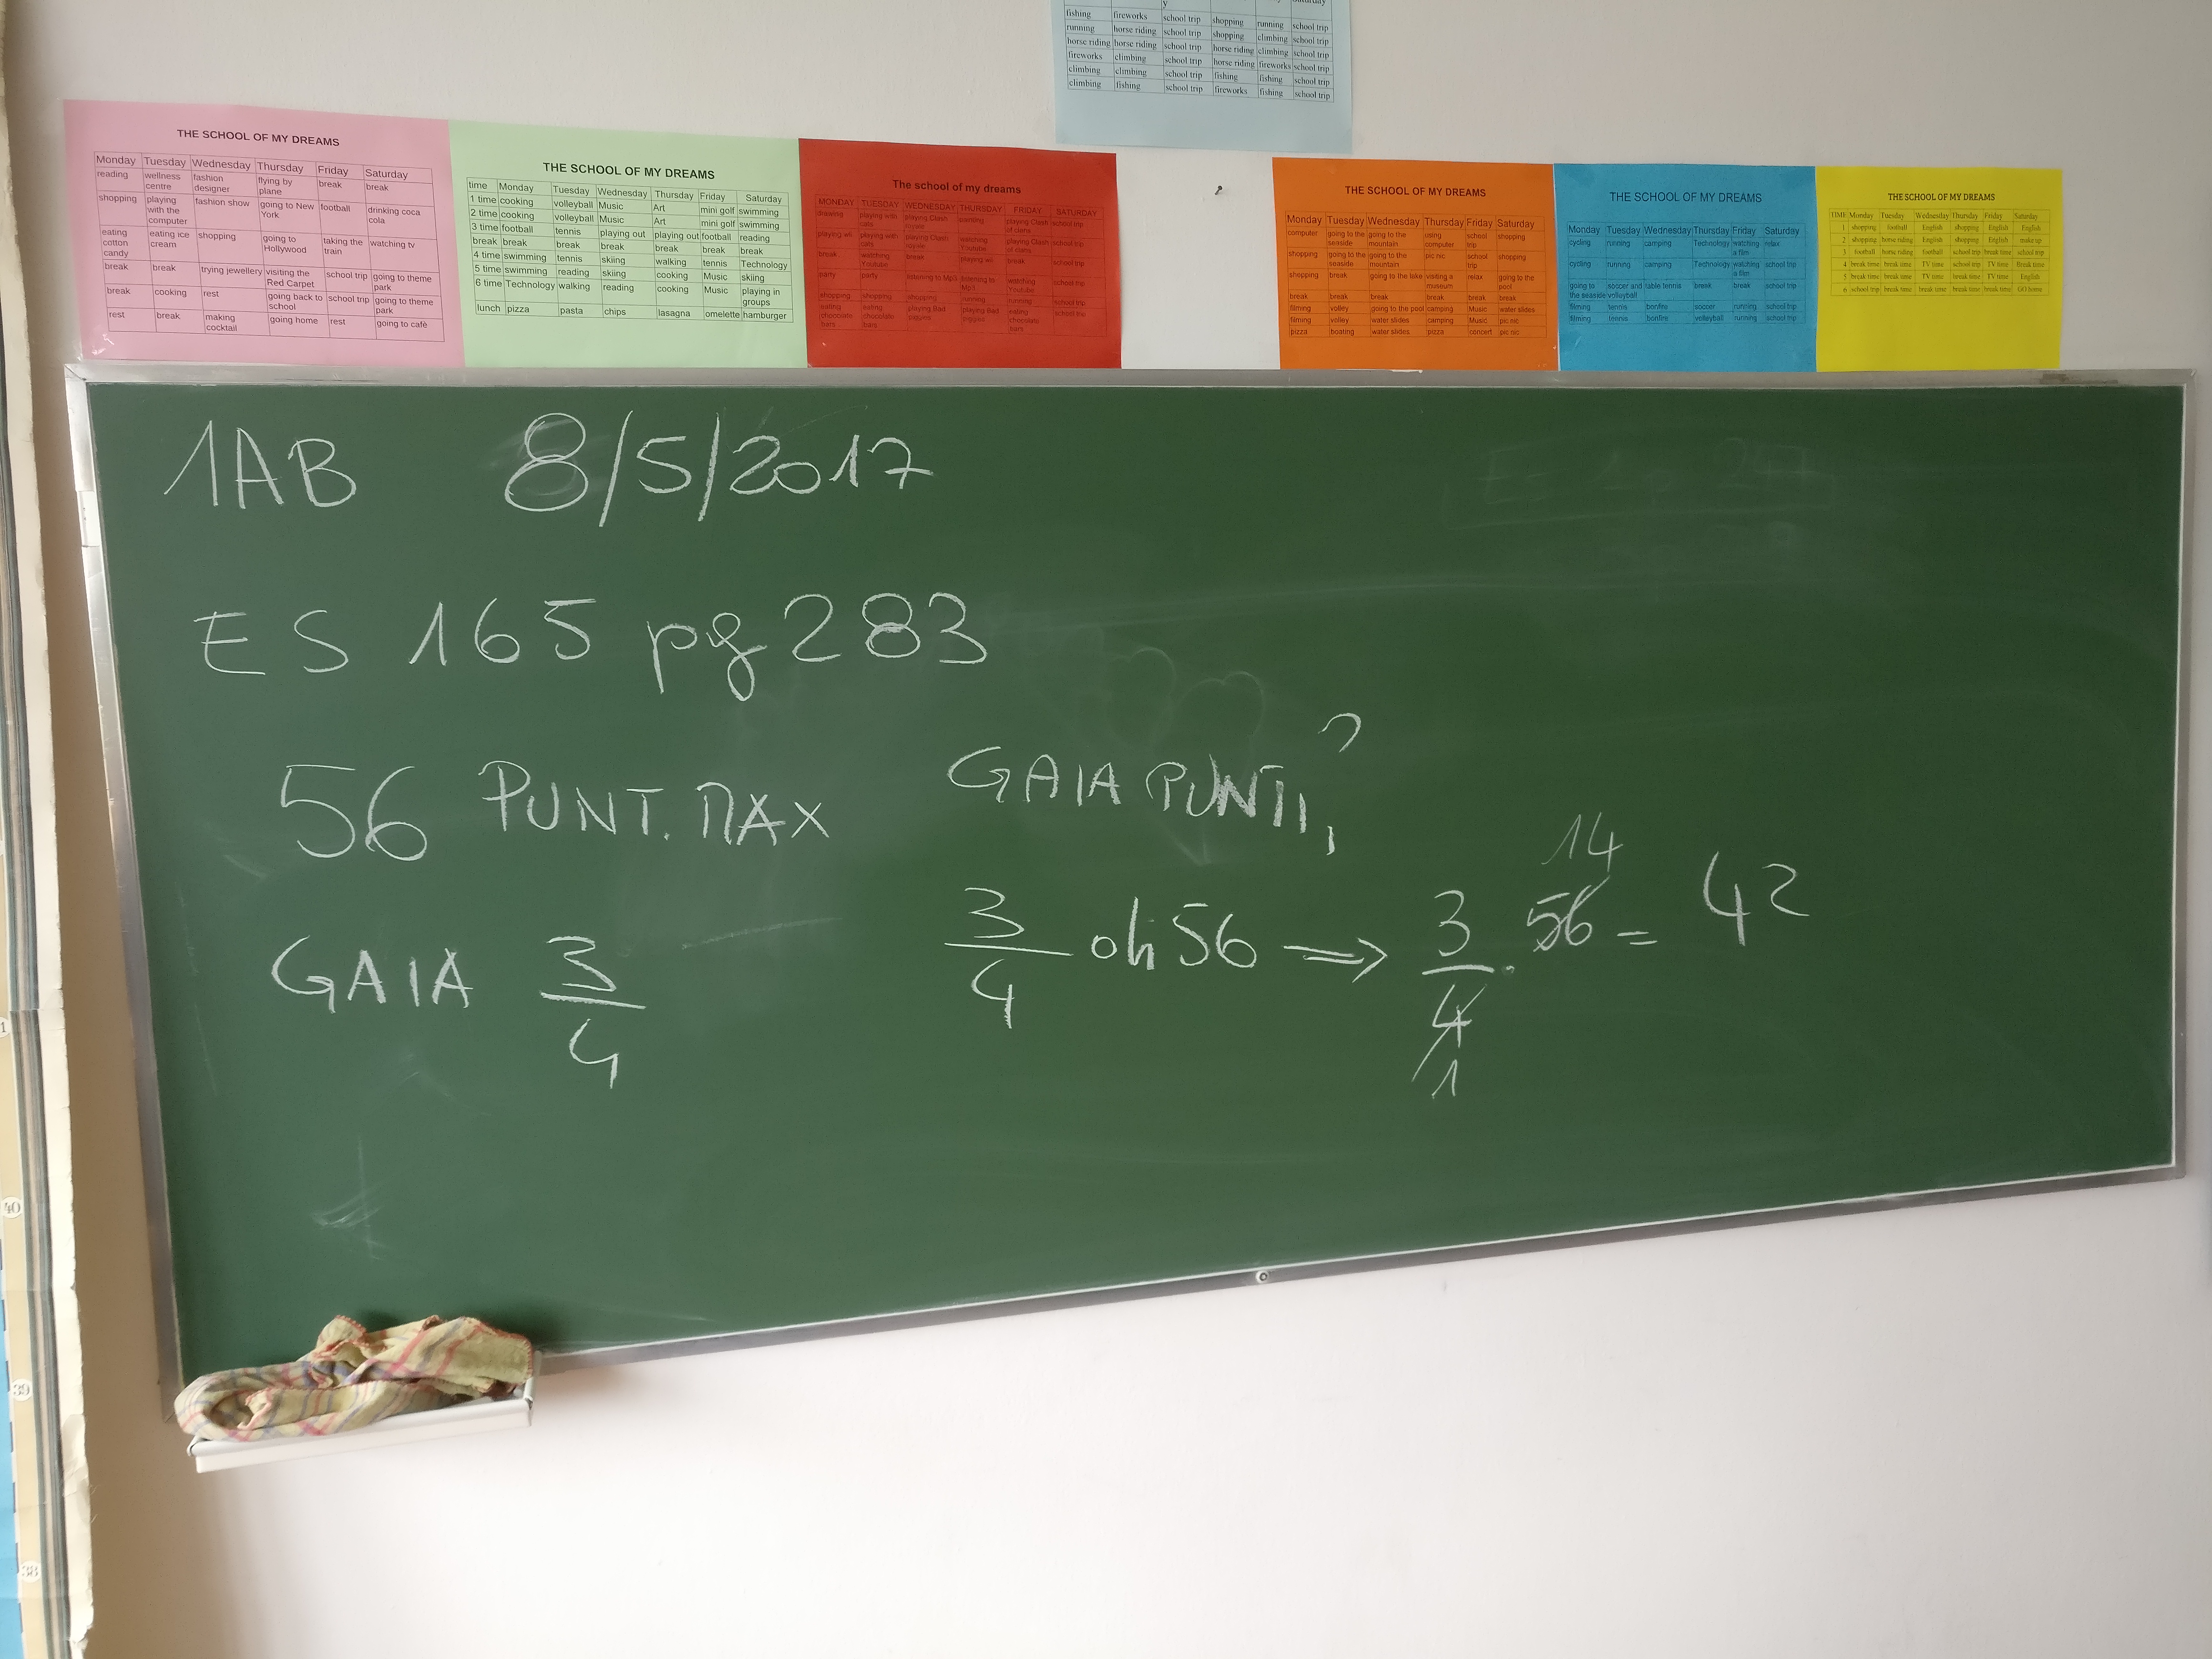 fishing fireworks school trip shopping running school trip
running horse riding school trip shopping climbing school trip
horse riding horse riding school trip horse riding climbing school trip
fireworks climbing school trip horse riding fireworks school trip
climbing climbing school trip fishing fishing school trip
climbing fishing school trip fireworks fishing school trip
THE SCHOOL OF MY DREAMS
Monday Tuesday Wednesday Thursday Friday Saturday
reading wellness centre fashion designer flying by plane break break
shopping playing with the computer fashion show going to New York football drinking coca cola
eating cotton candy eating ice cream shopping going to Hollywood taking the train watching tv
break break trying jewellery visiting the Red Carpet school trip going to theme park
break cooking rest going back to school school trip going to theme park
rest break making cocktail going home rest going to cafè
THE SCHOOL OF MY DREAMS
time Monday Tuesday Wednesday Thursday Friday Saturday
1 time cooking volleyball Music Art mini golf swimming
2 time cooking volleyball Music Art mini golf swimming
3 time football tennis playing out playing out football reading
break break break break break break break
4 time swimming tennis skiing walking tennis Technology
5 time swimming reading skiing cooking Music skiing
6 time Technology walking reading cooking Music playing in groups
lunch pizza pasta chips lasagna omelette hamburger
The school of my dreams
MONDAY TUESDAY WEDNESDAY THURSDAY FRIDAY SATURDAY
drawing playing with cats playing Clash royale playing Clash of clans school trip
playing wii playing with cats playing Clash royale watching Youtube playing Clash of clans school trip
break watching Youtube break playing wii break school trip
party party listening to Mp3 listening to Mp3 watching Youtube school trip
shopping shopping shopping running running school trip
eating chocolate bars eating chocolate bars playing Bad piggies playing Bad piggies eating chocolate bars school trip
THE SCHOOL OF MY DREAMS
Monday Tuesday Wednesday Thursday Friday Saturday
computer going to the seaside going to the mountain using computer school trip shopping
shopping going to the seaside going to the mountain pic nic school trip shopping
shopping break going to the lake visiting a museum relax going to the pool
break break break break break break
filming volley going to the pool camping Music water slides
filming volley water slides camping Music pic nic
pizza boating water slides pizza concert pic nic
THE SCHOOL OF MY DREAMS
Monday Tuesday Wednesday Thursday Friday Saturday
cycling running camping Technology watching a film relax
cycling running camping Technology watching a film school trip
going to the seaside soccer and volleyball table tennis break break school trip
filming tennis bonfire soccer running school trip
filming tennis bonfire volleyball running school trip
THE SCHOOL OF MY DREAMS
TIME Monday Tuesday Wednesday Thursday Friday Saturday
1 shopping football English shopping English English
2 shopping horse riding English shopping English make up
3 football horse riding football school trip break time school trip
4 break time break time TV time school trip TV time Break time
5 break time break time TV time break time TV time English
6 school trip break time break time break time break time GO home
1AB 8/5/2017
ES 165 pg 283
56 PUNT. MAX
GAIA 3/4
GAIA PUNTI, ?
3/4 di 56 ⇒ 3/4 · 56 = 42
14
1
40
39
38